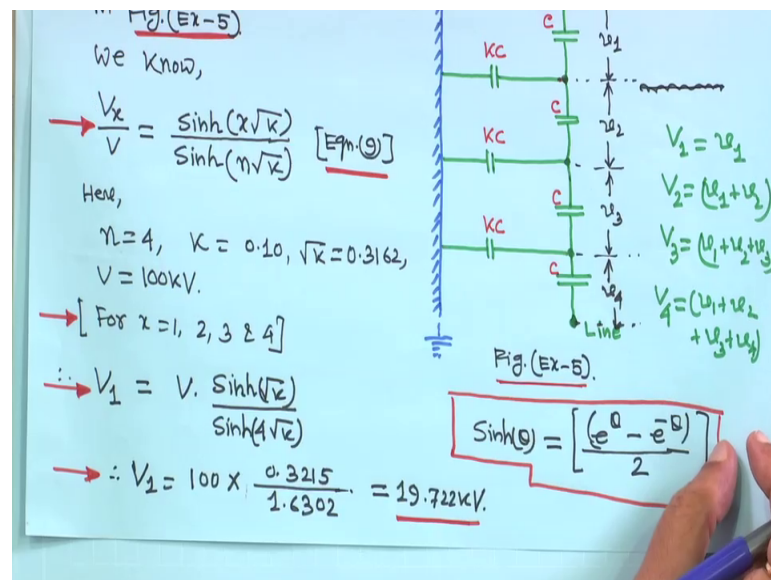 in Fig.(Ex-5)
We Know,
Vx/V = Sinh(x√K)/Sinh(n√K) [Eqn.(9)]
Here,
n=4, K = 0.10, √K = 0.3162,
V = 100KV.
[For x=1, 2, 3 & 4]
∴ V1 = V. Sinh(√K)/Sinh(4√K)
∴ V1 = 100 x 0.3215/1.6302 = 19.722KV.
C
KC
C
KC
C
KC
C
v1
v2
v3
v4
Line
Fig.(Ex-5).
V1 = v1
V2 = (v1+v2)
V3 = (v1+v2+v3
V4 = (v1+v2
+v3+v4)
Sinh(θ) = [(e^θ - e^-θ)/2]